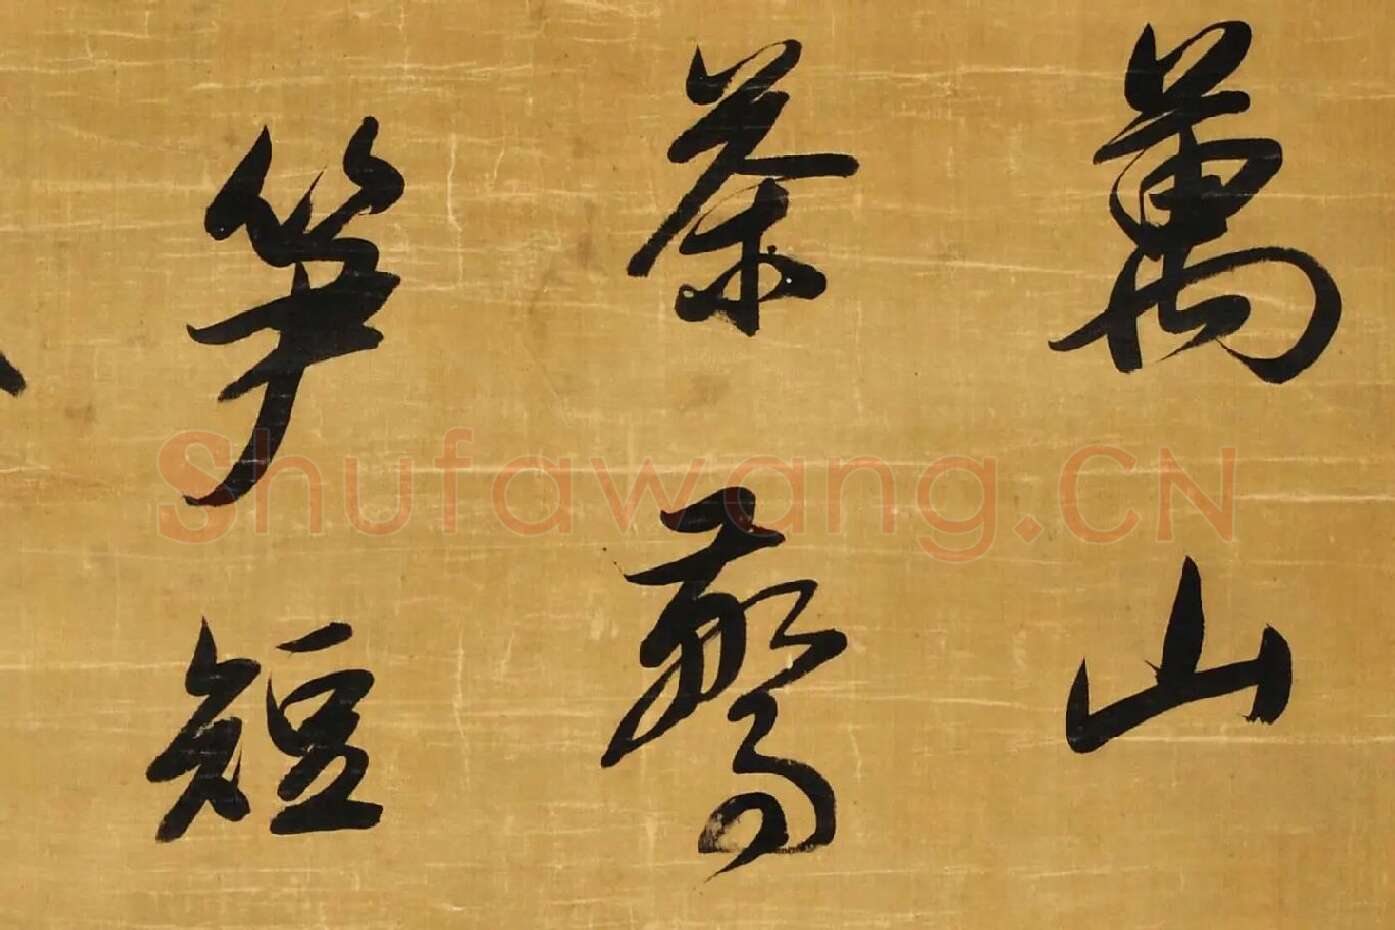 萬山
茶驚
笋短
Shufawang.CN